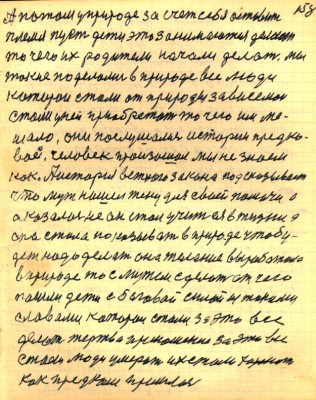 153
А потом у природе за счет себя оставит
племя пуст дети это занимаются делают
то чего их родители начали делат. мы
такие поделоми в природе все люди
которои стали от природы зависемои
стали у ней приобретат то чего им ме-
шало, они послушалис истории предко-
вой, человек произошол мы не знаем
как. А история ветхого закона подсказывает
что муж нашел жену для своей помочи а
оказалося не он стал учится в жизни а
она стала показыват в природе что бу-
дет надо делат она желание выработала
в природе то с мужем сделат от чего
пошли дети с баговай силой и такими
славами которои стали за это все
делат жертва приношение за это все
стали люди умерат их стали хоронит
как предкам пришлос